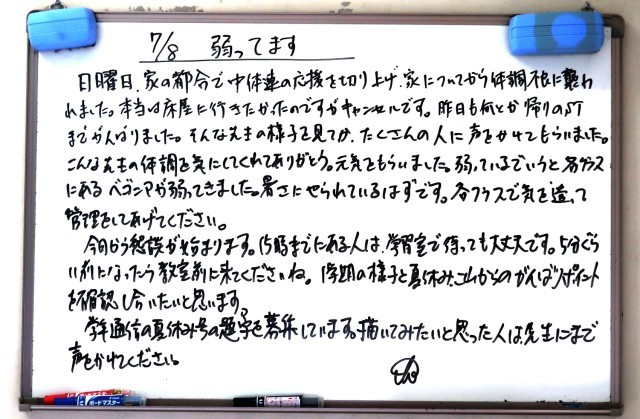 7/8 弱ってます
日曜日、家の都合で中体連の応援を切り上げ、家についてから体調不良に襲わ
れました。本当は床屋に行きたかったのですがキャンセルです。昨日も何とか帰りのST
までがんばりました。そんな先生の様子を見てか、たくさんの人に声をかけてもらいました。
こんな先生の体調を気にしてくれてありがとう。元気をもらいました。弱っているでいうと各クラス
にあるベゴニアが弱ってきました。暑さにやられているはずです。各クラスで気を遣って
管理をしてあげてください。
今日から懇談が始まります。15時までにある人は、学習室で待っても大丈夫です。5分ぐら
い前になったら教室前に来てくださいね。1学期の様子と夏休み、これからのがんばりポイント
を確認し合いたいと思います。
学年通信の夏休み号の題字を募集しています。描いてみたいと思った人は、先生にまで
声をかけてください。
ボードマスター